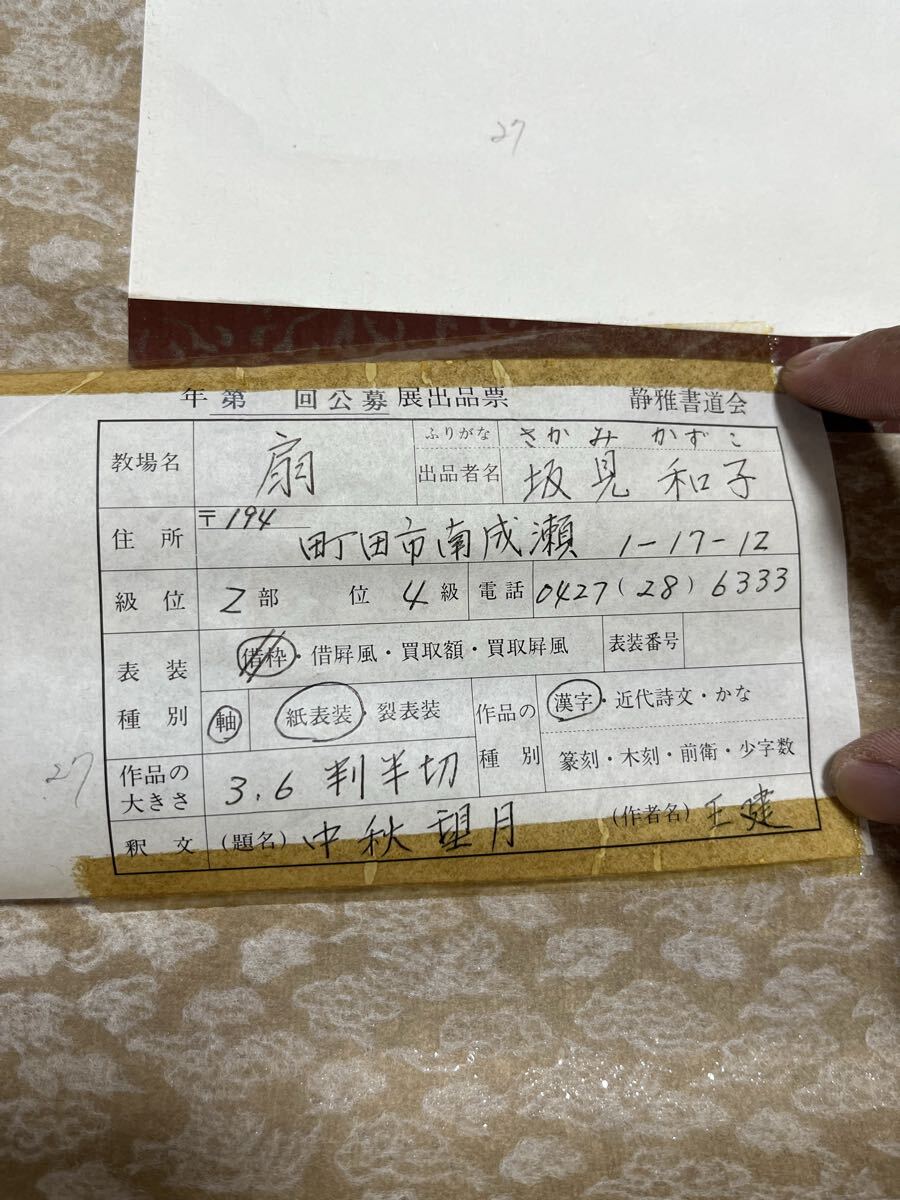 27
年 第 回公募展出品票 静雅書道会
教場名 扇 ふりがな さかみ かずこ
出品者名 坂見 和子
住所 〒194
町田市南成瀬 1-17-12
級位 2部 位 4級 電話 0427(28)6333
表装 借枠・借屛風・買取額・買取屛風 表装番号
種別 軸 紙表装・裂表装 作品の種別 漢字・近代詩文・かな
篆刻・木刻・前衛・少字数
27
作品の大きさ 3.6 判半切
釈文 (題名) 中秋望月 (作者名) 王建